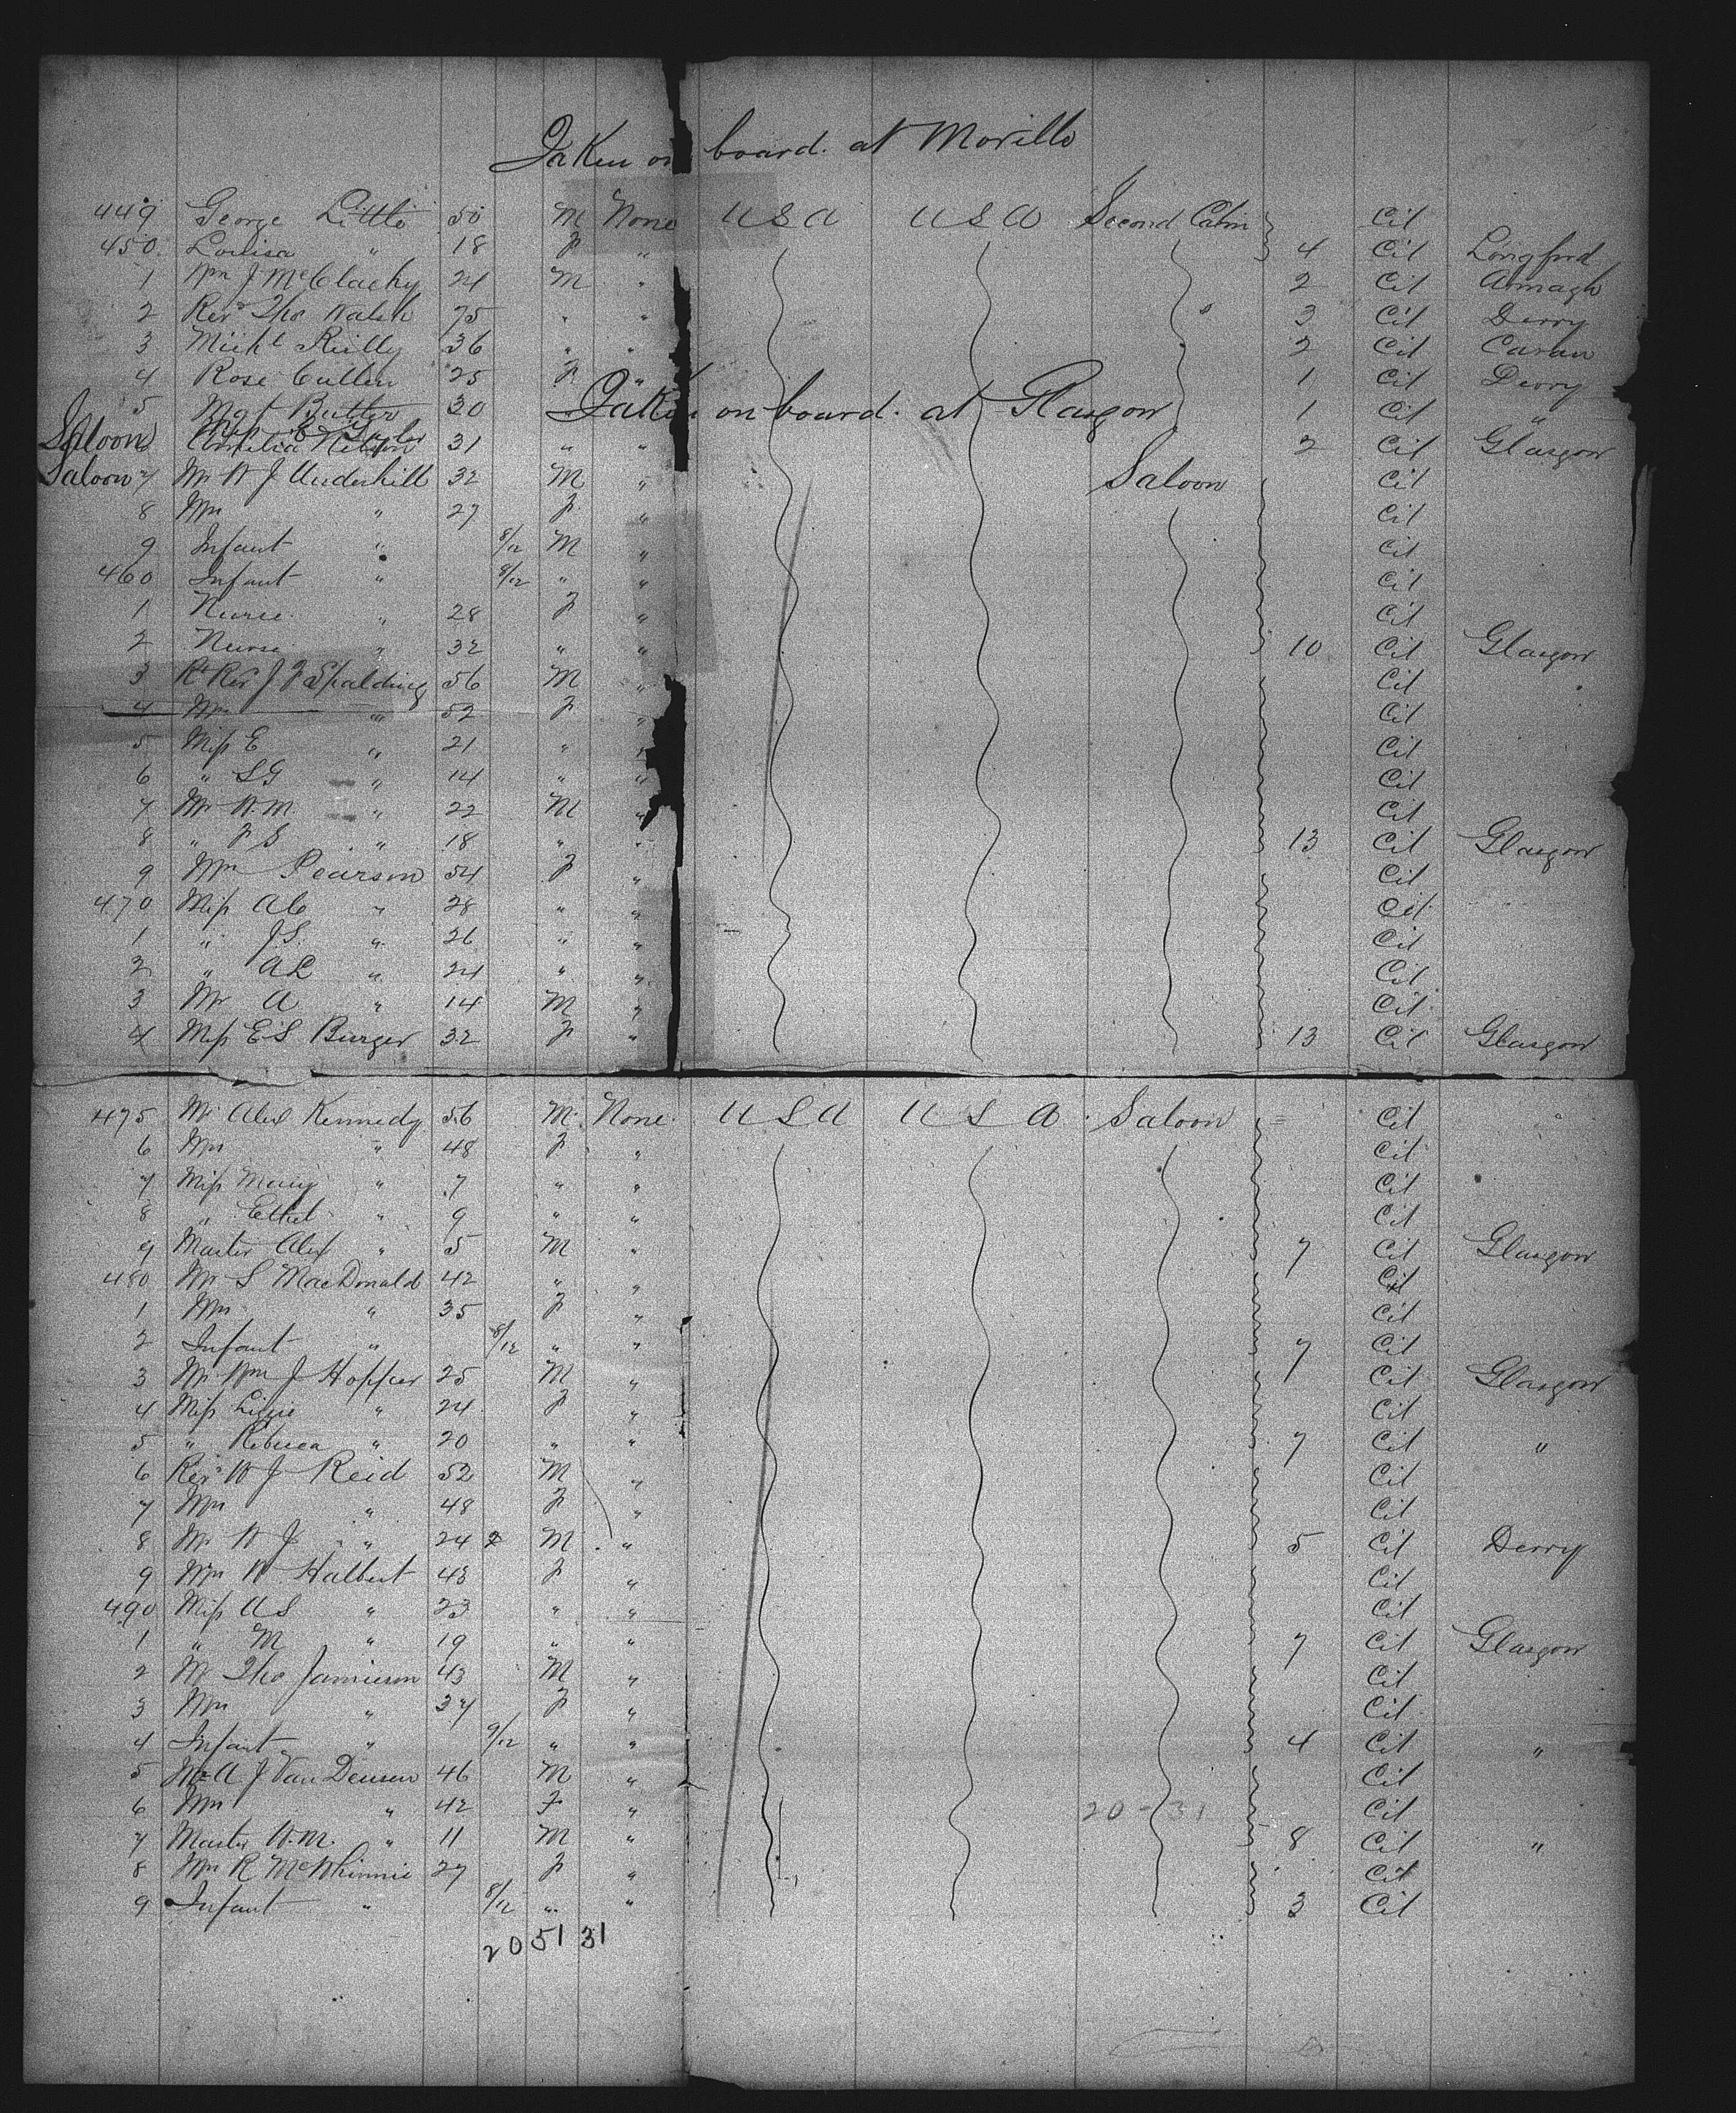 Taken on board. at Moville
449 George Little 50 M None USA USA Second Cabin Cit
450. Louisa " 18 F " 4 Cit Longford
1 Wm J McClachy 24 M " 2 Cit Armagh
2 Revd Tho Walsh 75 " " 3 Cit Derry
3 Michl Reilly 36 " " 2 Cit Cavan
4 Rose Cullen 25 F " 1 Cit Derry
5 Mgt Butler 30 1 Cit "
Taken on board. at Glasgow
Saloon Nelson 31 " " 2 Cit Glasgow
Saloon 7 Mr W J Underhill 32 M " Saloon Cit
8 Mrs " 27 F " Cit
9 Infant " 8/12 M " Cit
460 Infant " 8/12 " " Cit
1 Nurse " 28 F " Cit
2 Nurse " 32 " " 10 Cit Glasgow
3 Rt Rev J F Spalding 56 M " Cit
4 Mrs " 52 F " Cit
5 Miss E " 21 " " Cit
6 " SG " 14 " " Cit
7 Mr W.M. " 22 M " Cit
8 " F S " 18 " " 13 Cit Glasgow
9 Mrs Pearson 54 F " Cit
470 Miss AC " 28 " " Cit
1 " J.S. " 26 " " Cit
2 " AL " 24 " " Cit
3 Mr A " 14 M " Cit
4 Miss ES Burger 32 F " 13 Cit Glasgow
475 Mr Alex Kennedy 56 M None USA USA Saloon Cit
6 Mrs " 48 F " Cit
7 Miss Mary " 7 " " Cit
8 " Ethel " 9 " " Cit
9 Master Alex " 5 M " 7 Cit Glasgow
480 Mr S MacDonald 42 " " Cit
1 Mrs " 35 F " Cit
2 Infant " 8/12 " " 7 Cit
3 Mr Wm J Hopper 25 M " Cit Glasgow
4 Miss Lizzie " 24 F " Cit
5 " Rebecca " 20 " " 7 Cit "
6 Revd W J Reid 52 M " Cit
7 Mrs " 48 F " Cit
8 Mr W J " 24 2 M " 5 Cit Derry
9 Mrs W Halbert 43 F " Cit
490 Miss A S " 23 " " Cit
1 " M " 19 " " 7 Cit Glasgow
2 Mr Tho Jamieson 43 M " Cit
3 Mrs " 37 F " Cit
4 Infant " 9/12 " " 4 Cit "
5 Mr A J Van Deusen 46 M " Cit
6 Mrs " 42 F " 20-31 Cit
7 Master W.M. " 11 M " 8 Cit "
8 Mrs R McWhinnie 27 F " Cit
9 Infant " 8/12 " " 3 Cit
20 51 31